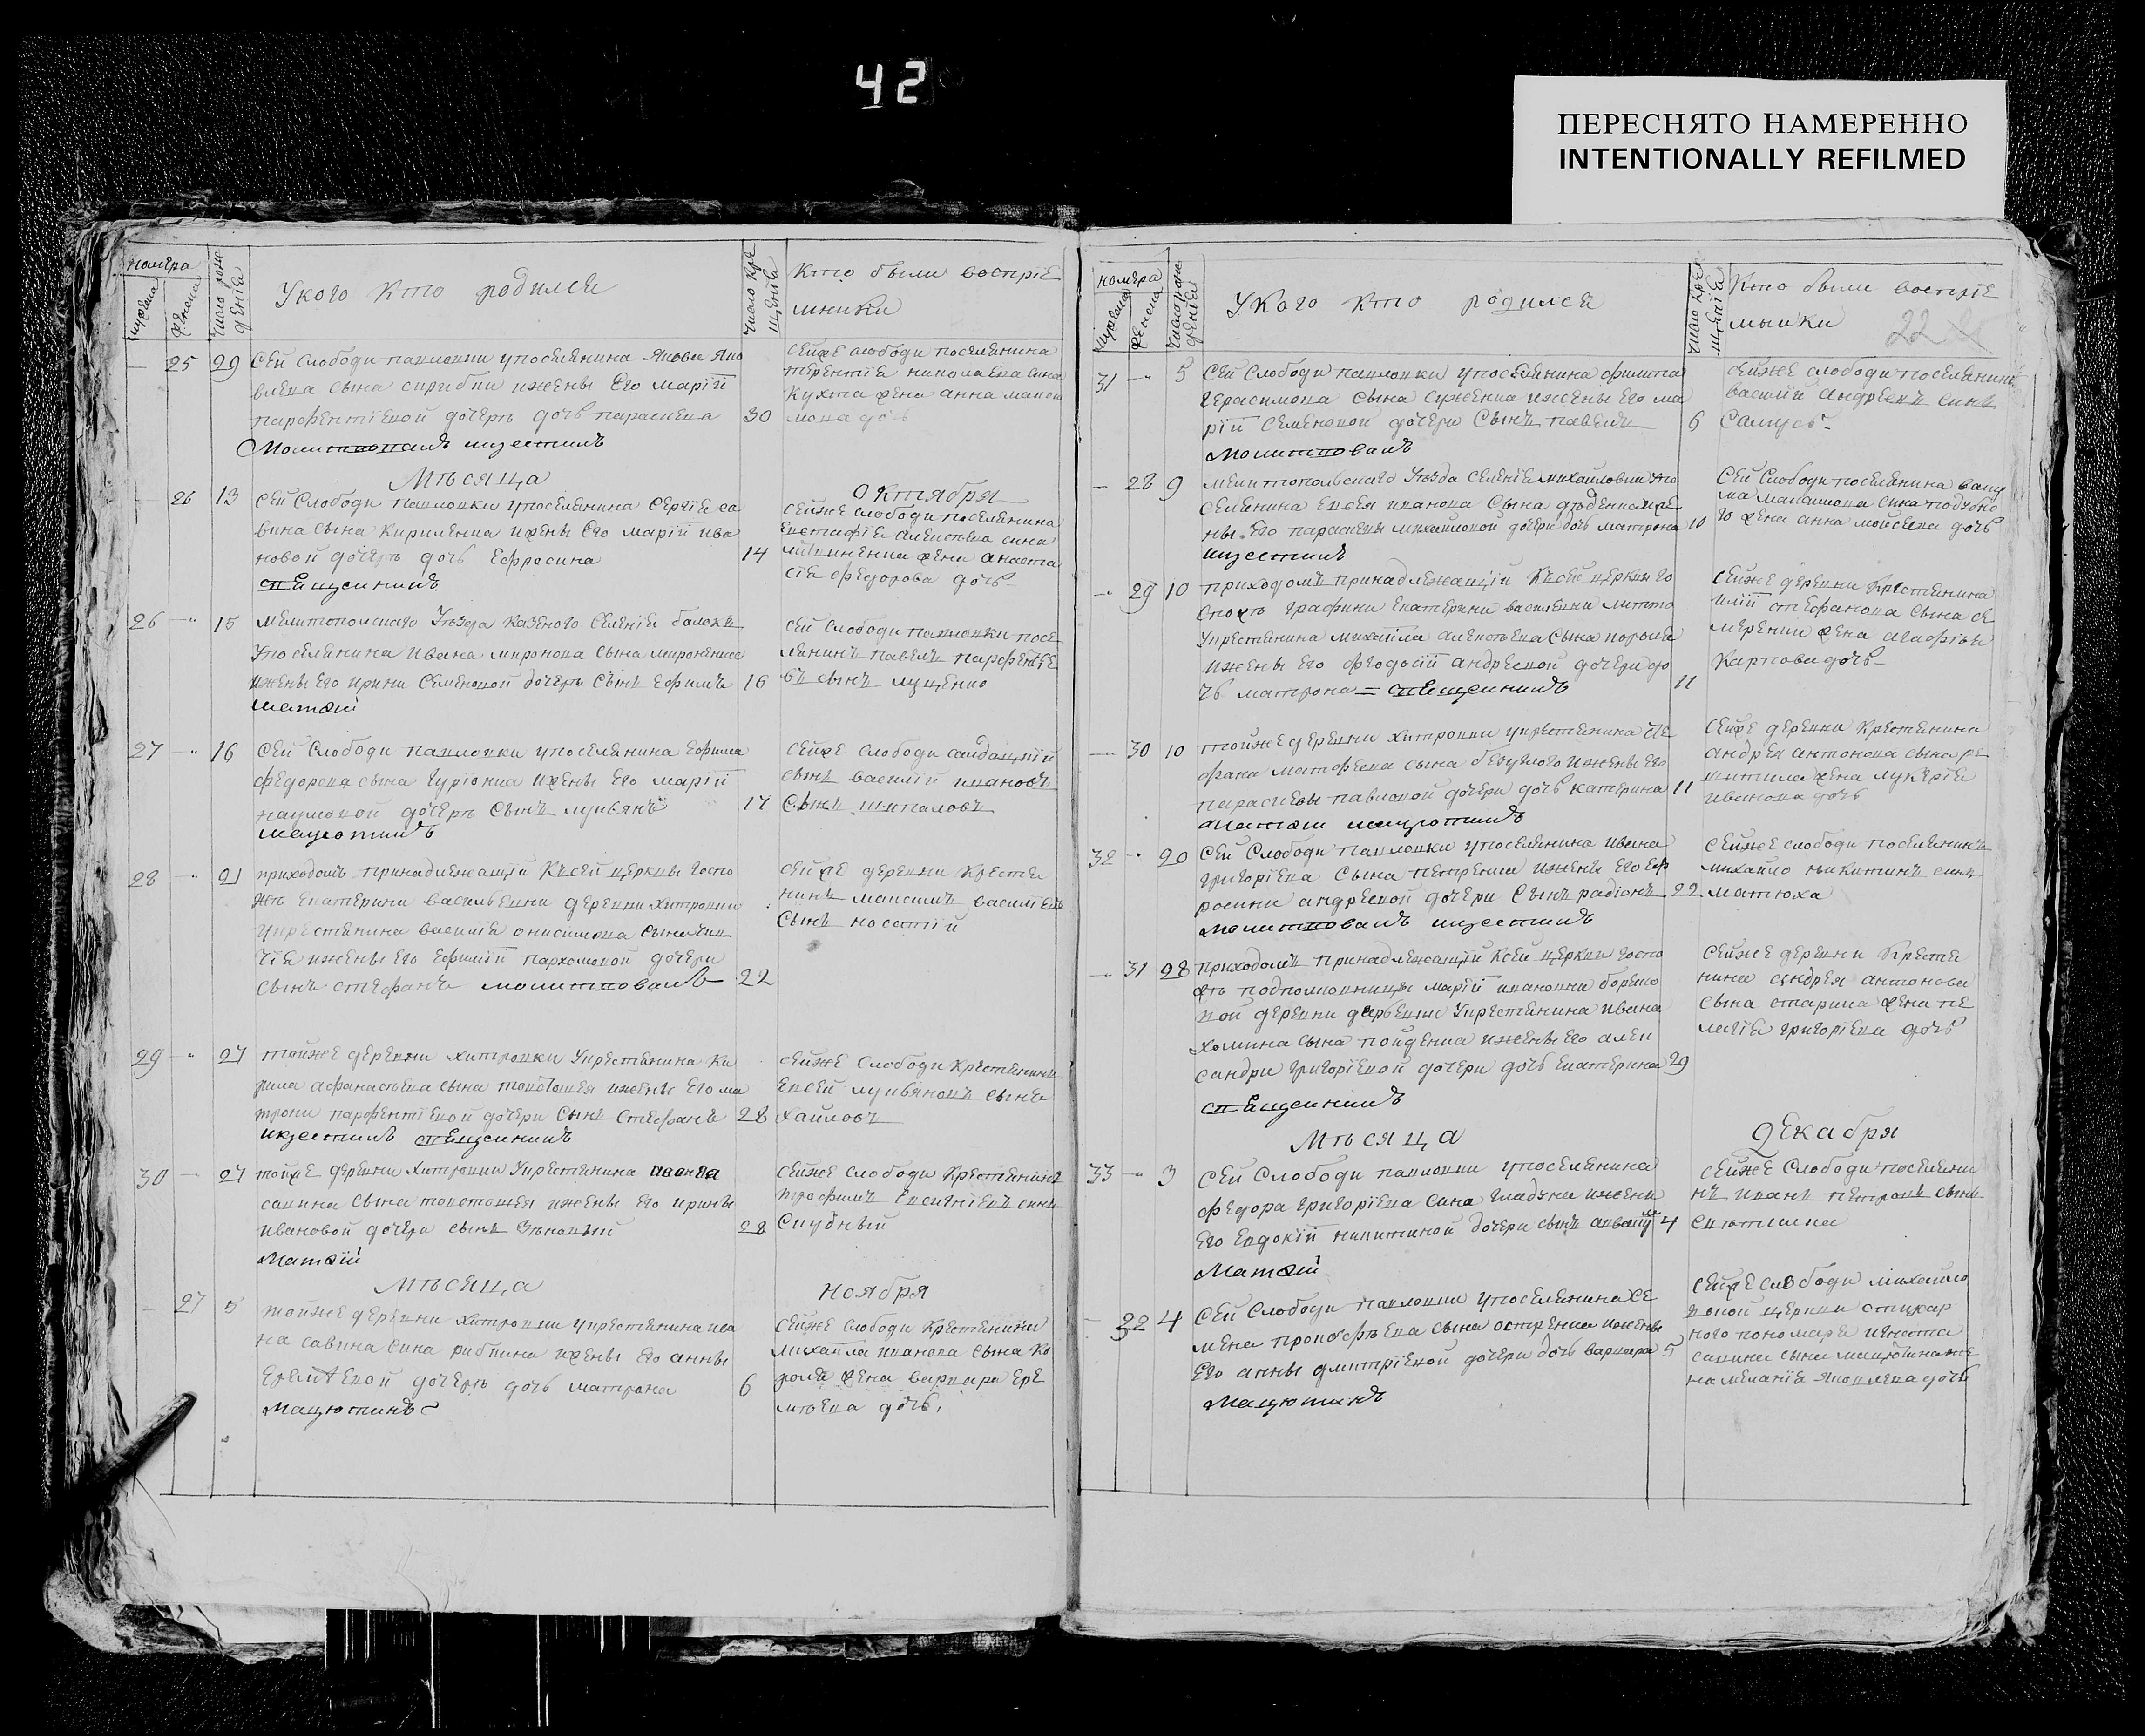 42
ПЕРЕСНЯТО НАМЕРЕННО
INTENTIONALLY REFILMED
номера
мужеска
женска
число рож
денія
Укого Кто родился
число кре
щенія
Кто были воспріе
мники
25 29 Сей Слободи павловки упоселянина Якова Яко
влева сына скрибки ижены Его маріи
парфентіевой дочерь дочь параскева 30
сейже слободи поселянина
терентіе николаева сина
Кухта жена анна
дочь
Мѣсяца
Октября
26 13 Сей Слободи павловки упоселянина Сергіе са
вина сына Кириленка жены Его маріи ива
новой дочерь дочь Ефросина 14
сейже слободи поселянина
Евстафіе алексѣева сина
жена анаста
сіе федорова дочь
26 15 Мелитополского Уѣзда Казеного Селеніе балоки
Упоселянина ивана миронова сына мироненка
ижены Его ирини Семеновой дочерь Сынъ Ефимъ 16
Матѳій
Сей слободи павловки посе
лянинъ павелъ парфентіе
въ сынъ луценко
27 16 Сей Слободи павловки упоселянина Ефима
федорова сына Гуріонка жены Его маріи
наумовой дочерь Сынъ лукьянъ 17
Мацютинъ
Сейже слободи
сынъ василій ивановъ
Сынъ шкпаловъ
28 21 приходомъ принадлежащій Късей церкви Госпо
жѣ Екатерини васильевни деревни хитровки
укрестянина василіе онисимова сына
ижены Его Ефиміи пархомовой дочери
сынъ стефанъ 22
Сейже деревни Крестя
нинъ максимъ василіевъ
Сынъ носатій
29 27 тойже деревни хитровки Укрестянина Ки
рила афанасѣева сына толстошея ижены Его ма
трони парфентіевой дочери Сынъ Стефанъ 28
сейже Слободи Крестянинъ
Евсей лукьяновъ сынъ
хайловъ
30 27 тойже деревни хитровки Укрестянина иванна
савина сына толстошея ижены Его ирины
ивановой дочери сынъ Зѣновій 28
Матѳій
Сейже слободи Крестянинъ
трофимъ Евсигніевъ синъ
Скубный
Мѣсяца
Ноября
27 5 тойже деревни хитровки укрестянина ива
на савина сина рибкина жены Его анны
Еремѣевой дочерь дочь матрона 6
Мацютинъ
Сейже слободи Крестянина
михаила иванова сына Ко
роля жена варвара Ере
мѣева дочь
номера
мужеска
женска
число рож
денія
УКого кто родился
число кре
щенія
Кто были воспріе
мники
22
31 5 Сей Слободи павловки упоселянина филипа
герасимова сына суженка ижены Его ма
ріи Семеновой дочери Сынъ павелъ 6
сейже слободи поселянинъ
василій андреевъ синъ
Самусь
28 9 мелитопольскаго Уѣзда селеніе михайловки упо
селянина Евсея иванова Сына же
ны Его параскевы михайловой дочери дочь матрона 10
Сей Слободи поселянина
жена анна мойсеева дочь
29 10 приходомъ принадлежащій Късей церкви го
спожѣ графини Екатерини василевни литто
Укрестянина михаила алексѣева сына короля
ижены его феодосіи андреевой дочери до
чь матрона 11
сейже деревни Крестянина
иліи стефанова сына се
меренки жена агафтія
Карпова дочь
30 10 тойже деревни хитровки укрестянина сте
фана матфеева сына безуглого ижены Его
параскевы павловой дочери дочь катерина 11
Сейже деревни Крестянина
андрея антонова сына
жена лукеріе
иванова дочь
32 20 Сей Слободи павловки упоселянина ивана
григоріева Сына петренка ижены Его Еф
росини андреевой дочери Сынъ радіонъ 22
Сейже слободи поселянинъ
михайло никитинъ синъ
матюха
31 28 приходомъ принадлежащій Ксей церкви госпо
жѣ подполковници маріи ивановни
деревни дарьевки Укрестянина ивана
хомина сына ижены его алек
сандри григоріевой дочери дочь Екатерина 29
Сейже деревни Крестя
нина андрея антонова
сына старика жена пе
лагіе григоріева дочь
Мѣсяца
Декабря
33 3 Сей Слободи павловки упоселянина
федора григоріева сина гладуна ижени
Его Евдокіи никитиной дочери сынъ 4
Матѳій
сейже Слободи поселяни
нъ иванъ петровъ сынъ
32 4 Сей Слободи павловки упоселянина Се
мена прокофѣева сына остренка ижены
Его анны дмитріевой дочери дочь варвара 5
Мацютинъ
сейже слободи михайло
вской церкви стихар
ного пономаря игната
савина сына мацютина же
на меланіе Яковлева дочь